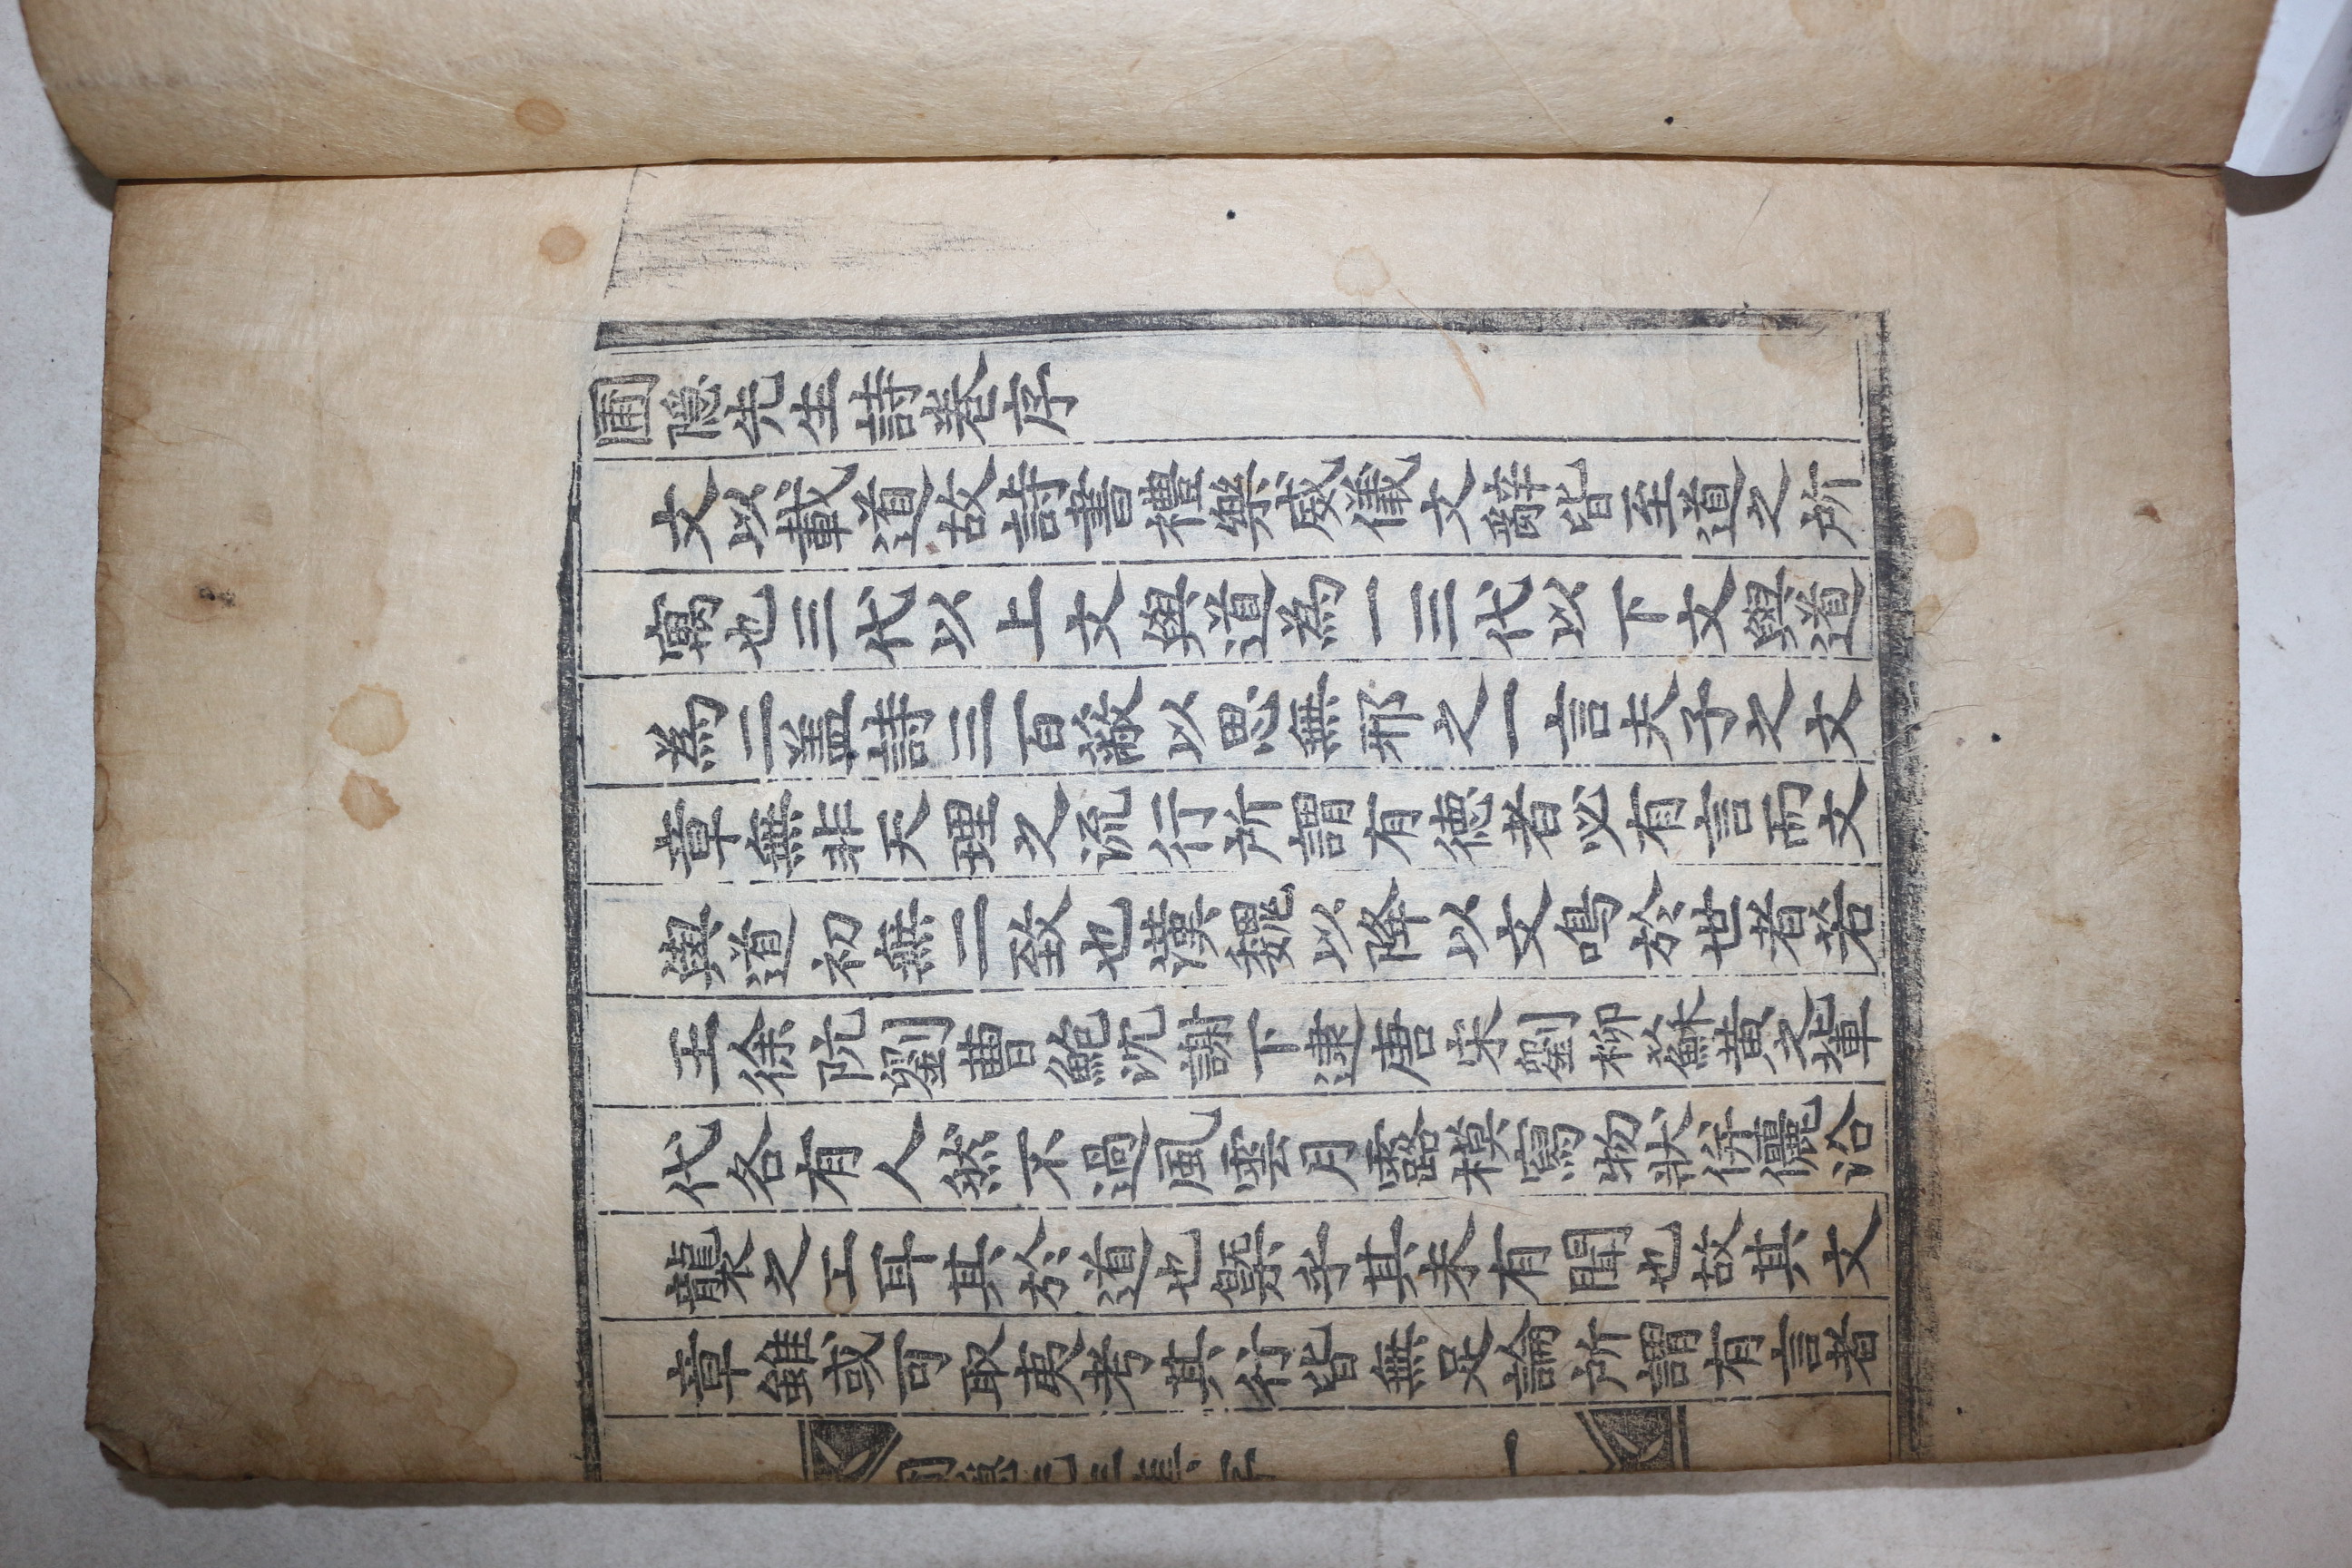 圃隱先生詩卷序
文以載道故詩書禮樂威儀文辭皆至道之所
寓也三代以上文與道爲一三代以下文與道
爲二盖詩三百蔽以思無邪之一言夫子之文
章無非天理之流行所謂有德者必有言而文
與道初無二致也漢魏以降以文鳴於世者若
王徐阮劉曹鮑沈謝下逮唐宋劉柳蘇黃之輩
代各有人然不過風雲月露模寫物狀偝儷沿
襲之工耳其於道也槩乎其未有聞也故其文
章雖或可取夷考其行皆無足論所謂有言者
一